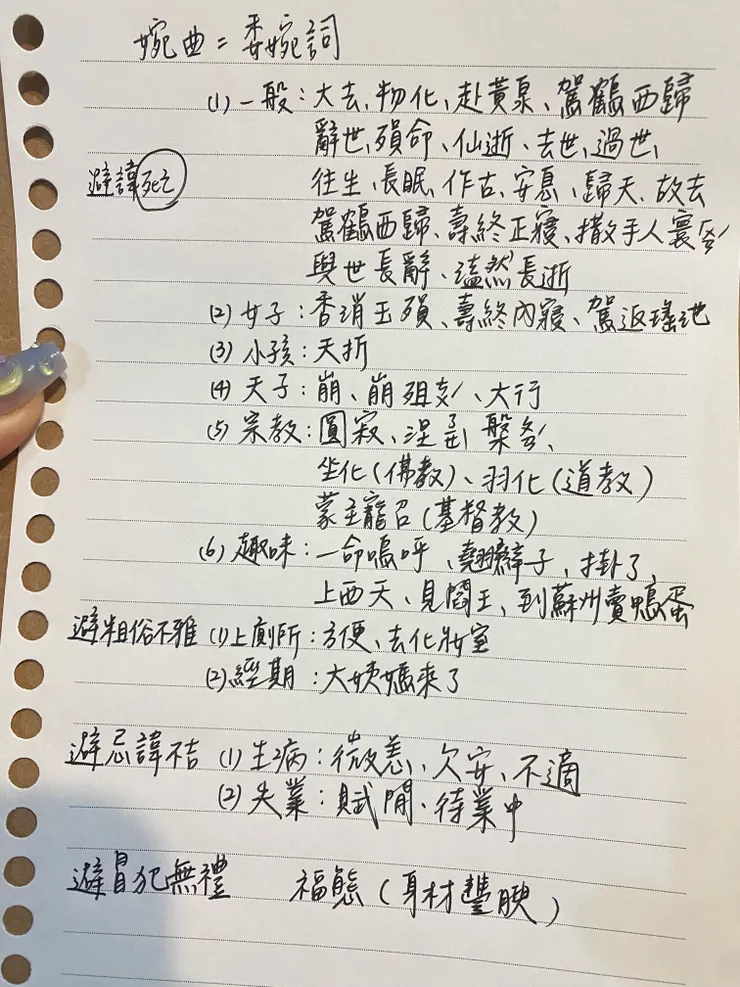 婉曲=委婉詞
(1)一般:大去、物化、赴黃泉、駕鶴西歸
辭世、殞命、仙逝、去世、過世、
避諱死亡 往生、長眠、作古、安息、歸天、故去
駕鶴西歸、壽終正寢、撒手人寰ㄏㄨㄢˊ
與世長辭、溘然長逝
(2)女子:香消玉殞、壽終內寢、駕返瑤池
(3)小孩:夭折
(4)天子:崩、崩殂ㄘㄨˊ、大行
(5)宗教:圓寂、涅ㄋㄧㄝˋ槃ㄆㄢˊ、
坐化(佛教)、羽化(道教)
蒙主寵召(基督教)
(6)趣味:一命嗚呼、翹辮子,掛了,
上西天、見閻王、到蘇州賣鴨蛋
避粗俗不雅 (1)上廁所:方便、去化妝室
(2)經期:大姨媽來了
避忌諱不吉 (1)生病:微恙、欠安、不適
(2)失業:賦閒、待業中
避冒犯無禮 福態(身材豐腴)